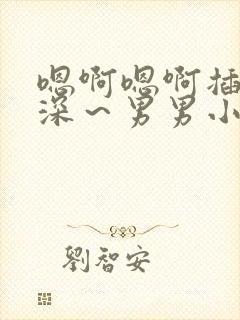 嗯啊嗯啊插
深～男男小
劉智安